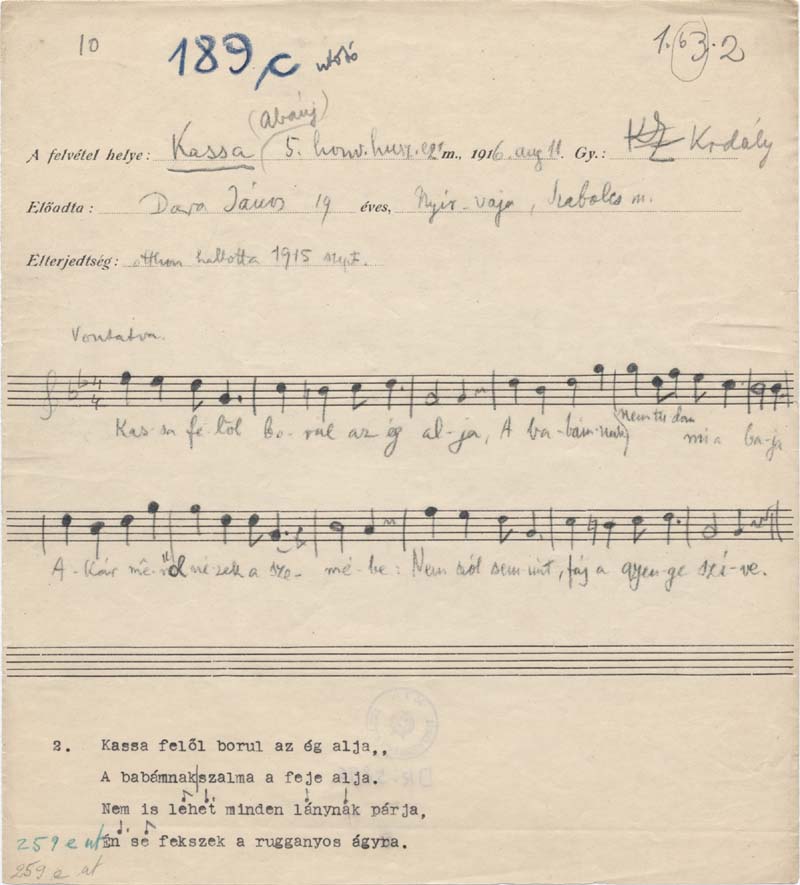 10
189/c utótó
1. 63. 2
(Abauj)
A felvétel helye: Kassa 5. honv. husz. ezr m., 1916. aug 11. Gy.: Kodály
Előadta: Dara János 19 éves, Nyir-vaja, Szabolcs m.
Elterjedtség: otthon hallotta 1915
Vontatva.
Kas-sa fe-lől bo-rúl az ég al-ja, A ba-bám-nak nem tu dom mi a ba-ja
A-kár mē-ről né-zek a sze-mé-be: Nem szól sem-mit, fáj a gyen-ge szí-ve.
2. Kassa felől borul az ég alja,,
A babámnak|szalma a feje alja.
Nem is lehet minden lánynak párja,
259 e ut Én se fekszek a rugganyos ágyba.
259 e at